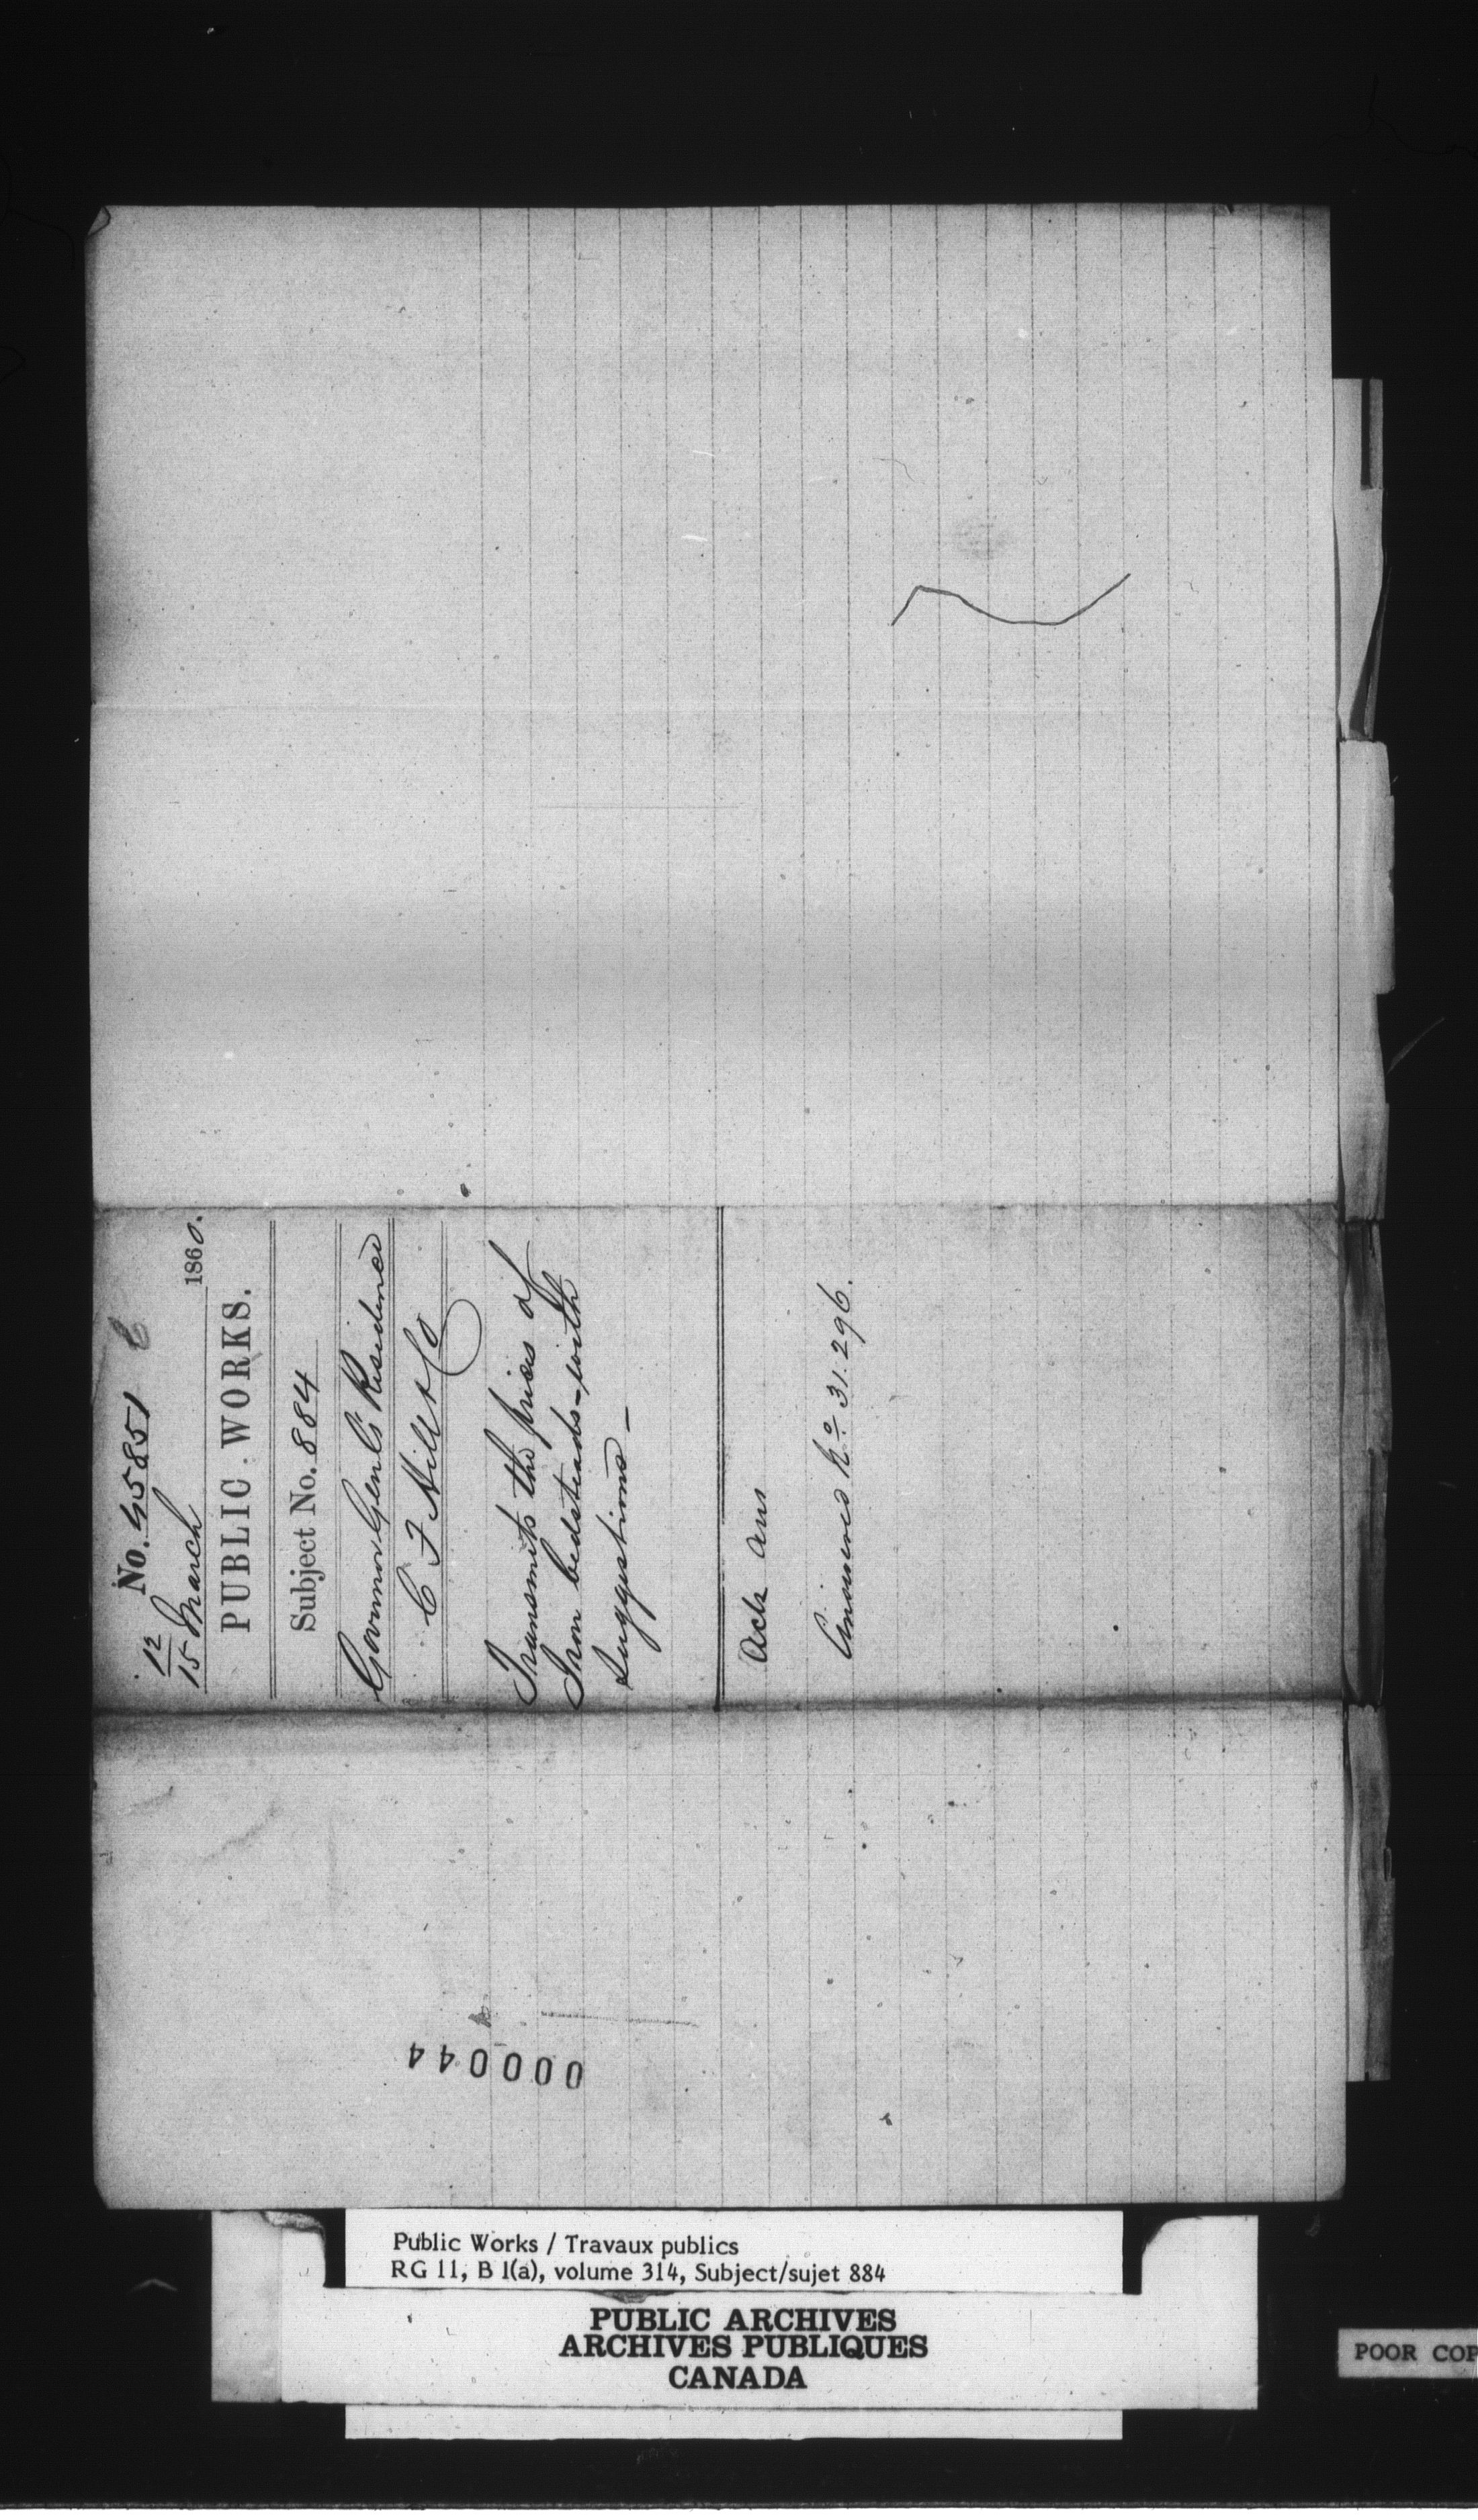 No. 45851
12
15 March 1860.
PUBLIC WORKS.
Subject No. 884
Governor Genl's Residence
C F Hill & Co
Transmits the prices of
Iron bedsteads - with
suggestions -
Ack ans
Answered No 31.296.
000044
Public Works / Travaux publics
RG 11, B 1(a), volume 314, Subject/sujet 884
PUBLIC ARCHIVES
ARCHIVES PUBLIQUES
CANADA
POOR COP